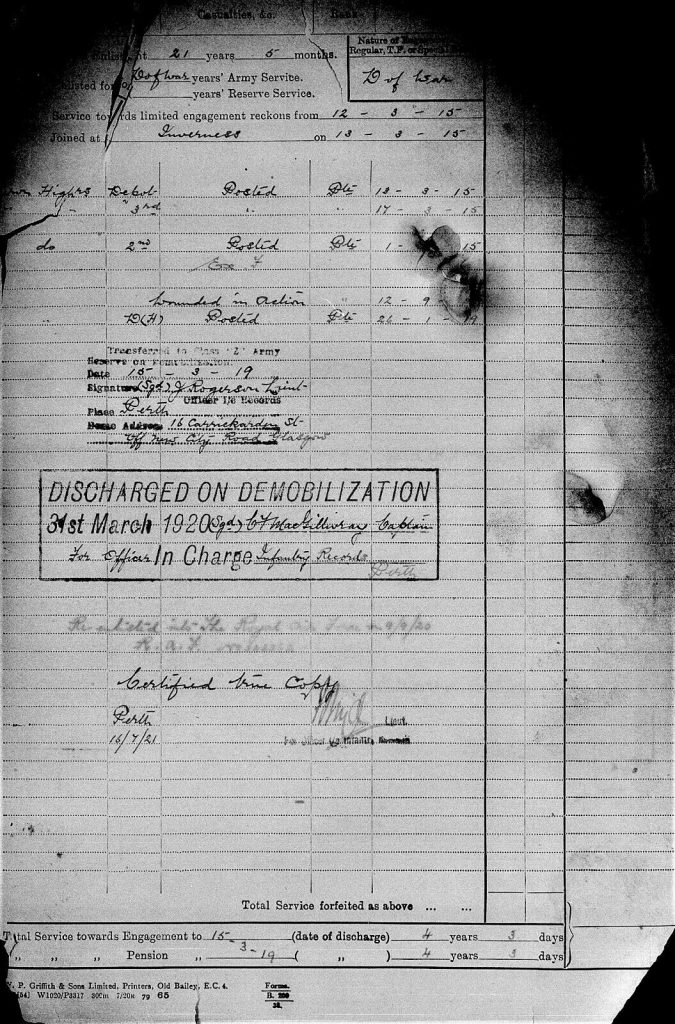 Casualties, &c. Rank
Nature of
Regular, T.F. or
D of War
21 years 5 months.
for D of War years' Army Service.
years' Reserve Service.
Service towards limited engagement reckons from 12 - 3 - 15
Joined at Inverness on 13 - 3 - 15
Highrs Depot Posted Pte 12 - 3 - 15
" 3rd " " 17 - 3 - 15
do 2nd Posted Pte 1 - 15
Wounded in Action " 12 - 9 -
D(H) Posted Pte 26 - 1 - 19
Transferred to Class "Z" Army
Reserve on Demobilization.
Date 15 - 3 - 19
Signature (Sgd) J Rogerson Lieut
Officer i/c Records
Place Perth
Home Address 16 Carrickarden St
Off New City Road Glasgow
DISCHARGED ON DEMOBILIZATION
31st March 1920 (Sgd) MacGillivray Captain
For Officer In Charge Infantry Records
Perth
Re-enlisted into The Royal Air Force on 9/9/20
R.A.F.
Certified true Copy
Perth
16/7/21
Lieut.
For Officer i/c Infantry Records
Total Service forfeited as above ... ...
Total Service towards Engagement to 15- (date of discharge) 4 years 3 days
" " " Pension " 3 - 19 ( " ) 4 years 3 days
P. Griffith & Sons Limited, Printers, Old Bailey, E.C. 4.
W1020/P3317 300m 7/20R 79 65
Forms
B. 200